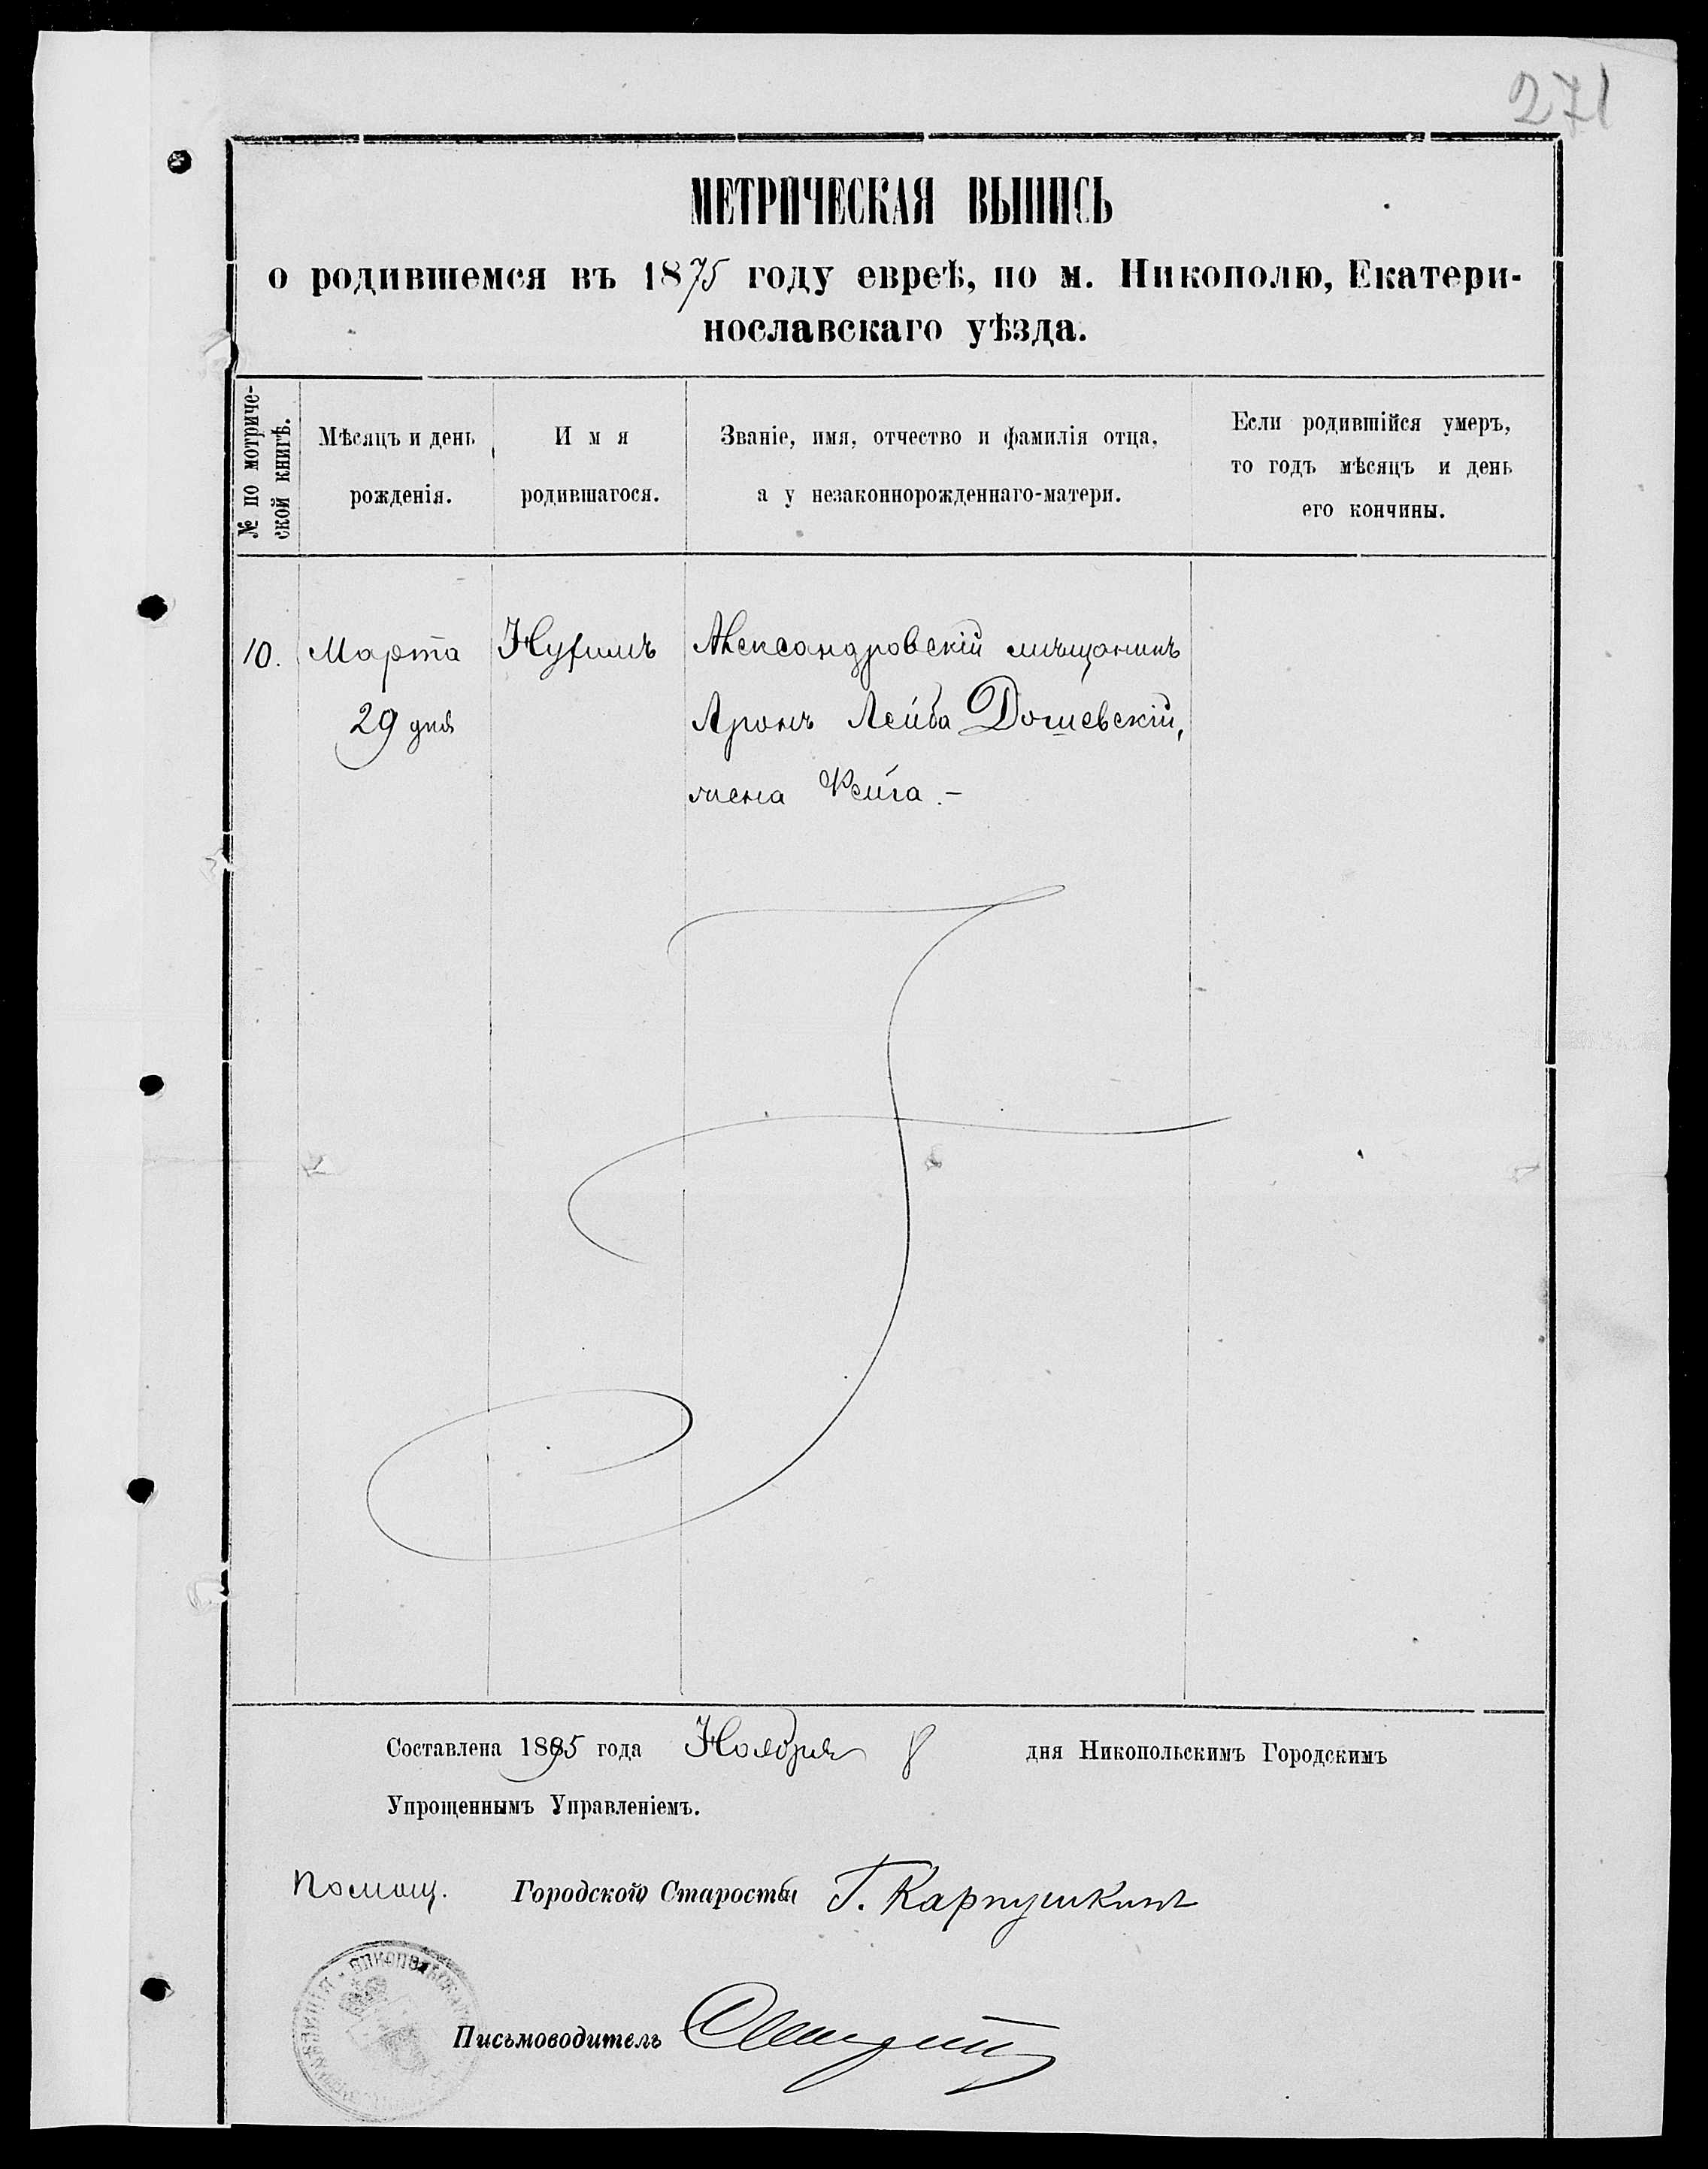 271
МЕТРИЧЕСКАЯ ВЫПИСЬ
о родившемся въ 1875 году евреѣ, по м. Никополю, Екатери-
нославскаго уѣзда.
№ по мотриче-
ской книгѣ.
Мѣсяцъ и день
рожденія.
Имя
родившагося.
Званіе, имя, отчество и фамилія отца,
а у незаконнорожденнаго-матери.
Если родившійся умеръ,
то годъ мѣсяцъ и день
его кончины.
10.
Марта
29 дня
Нухимъ
Александровскій мѣщанинъ
Аронъ Лейба Дошевскій,
жена Фейга.-
Составлена 1895 года Ноября 8 дня Никопольскимъ Городскимъ
Упрощеннымъ Управленіемъ.
Помощ. Городского Старосты Г. Карпушкинъ
Письмоводитель